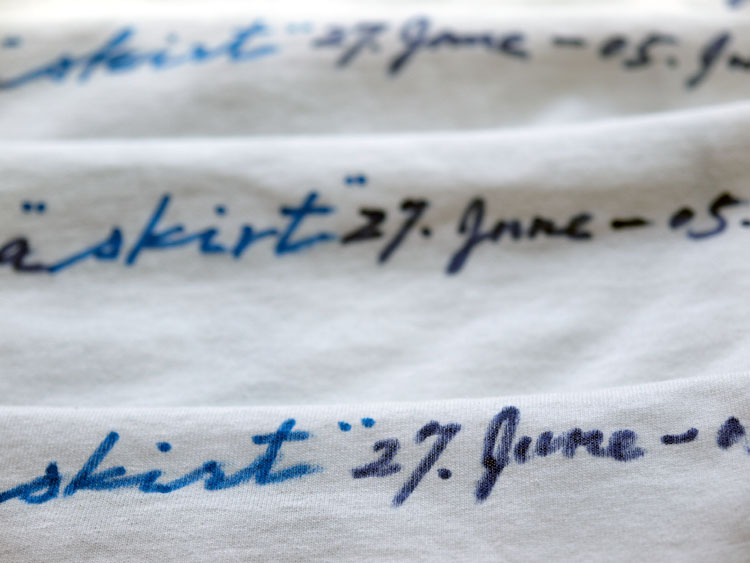 "skirt" 27. June - 05. Ju
a "skirt" 27. June - 05.
skirt" 27. June - 0